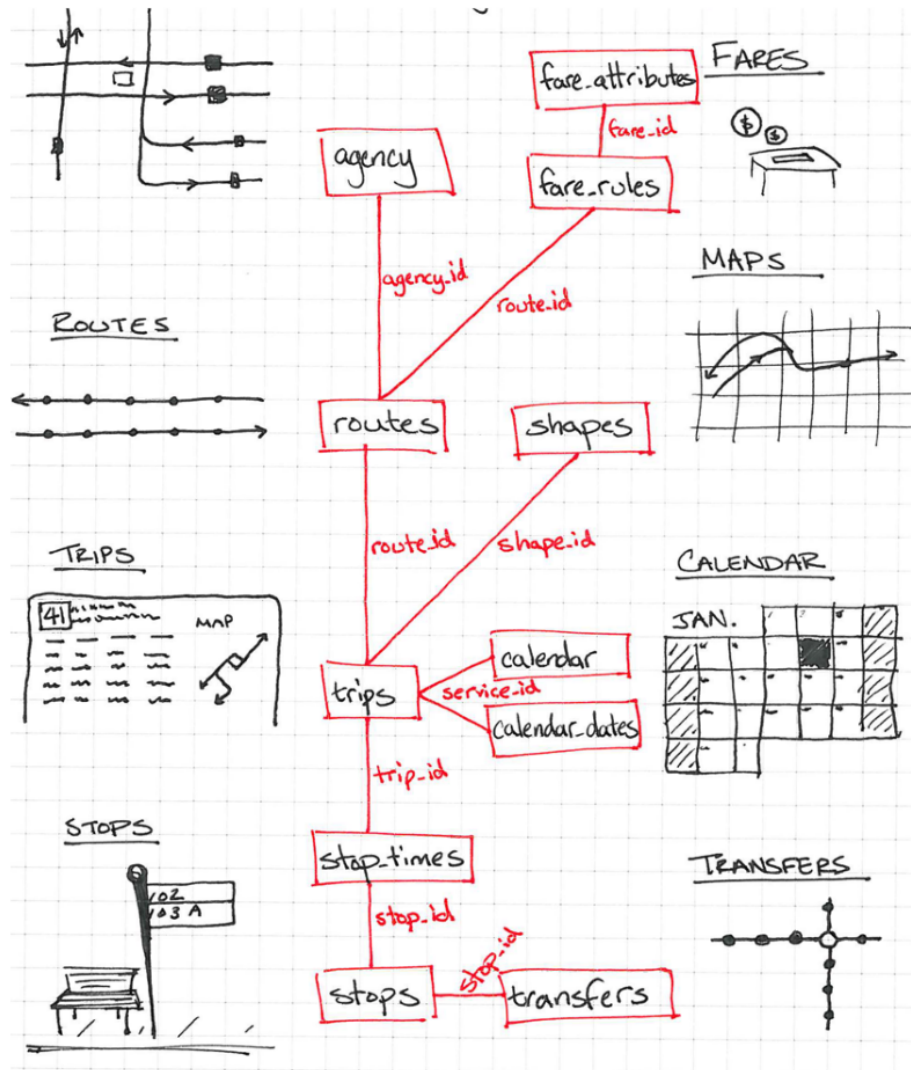 fare_attributes
FARES
fare_id
$
$
agency
fare_rules
MAPS
agency_id
route_id
ROUTES
routes
shapes
route_id
shape_id
TRIPS
CALENDAR
41
MAP
JAN.
calendar
trips
service_id
calendar_dates
trip_id
STOPS
stop_times
TRANSFERS
102
103 A
stop_id
stop_id
stops
transfers